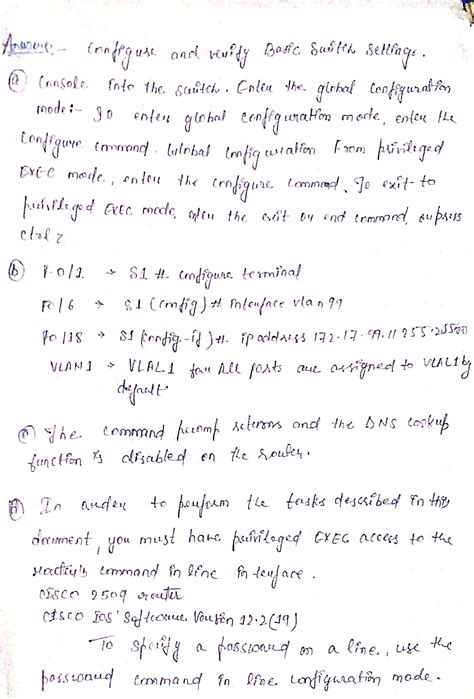 Answer:- Configure and verify Basic Switch settings.
(a) Console into the switch. Enter the global configuration
mode:- To enter global configuration mode, enter the
configure command. Global configuration from privileged
EXEC mode, enter the configure command, To exit to
privileged EXEC mode, enter the exit or end command, or press
ctrl z
(b) F0/1 → S1 # configure terminal
F0/6 → S1 (config)# interface vlan 99
F0/18 → S1 (config-if)#. ip address 172.17.99.11 255.255.
VLAN1 → VLAL1 for All ports are assigned to VLAL1 by
default
(c) The command promp returns and the DNS lookup
function is disabled on the router.
In order to perform the tasks described in this
document, you must have privileged EXEC access to the
command in line interface.
CISCO 2509 router
CISCO IOS Software Version 12.2(19)
To specify a password on a line, use the
password command in line configuration mode.